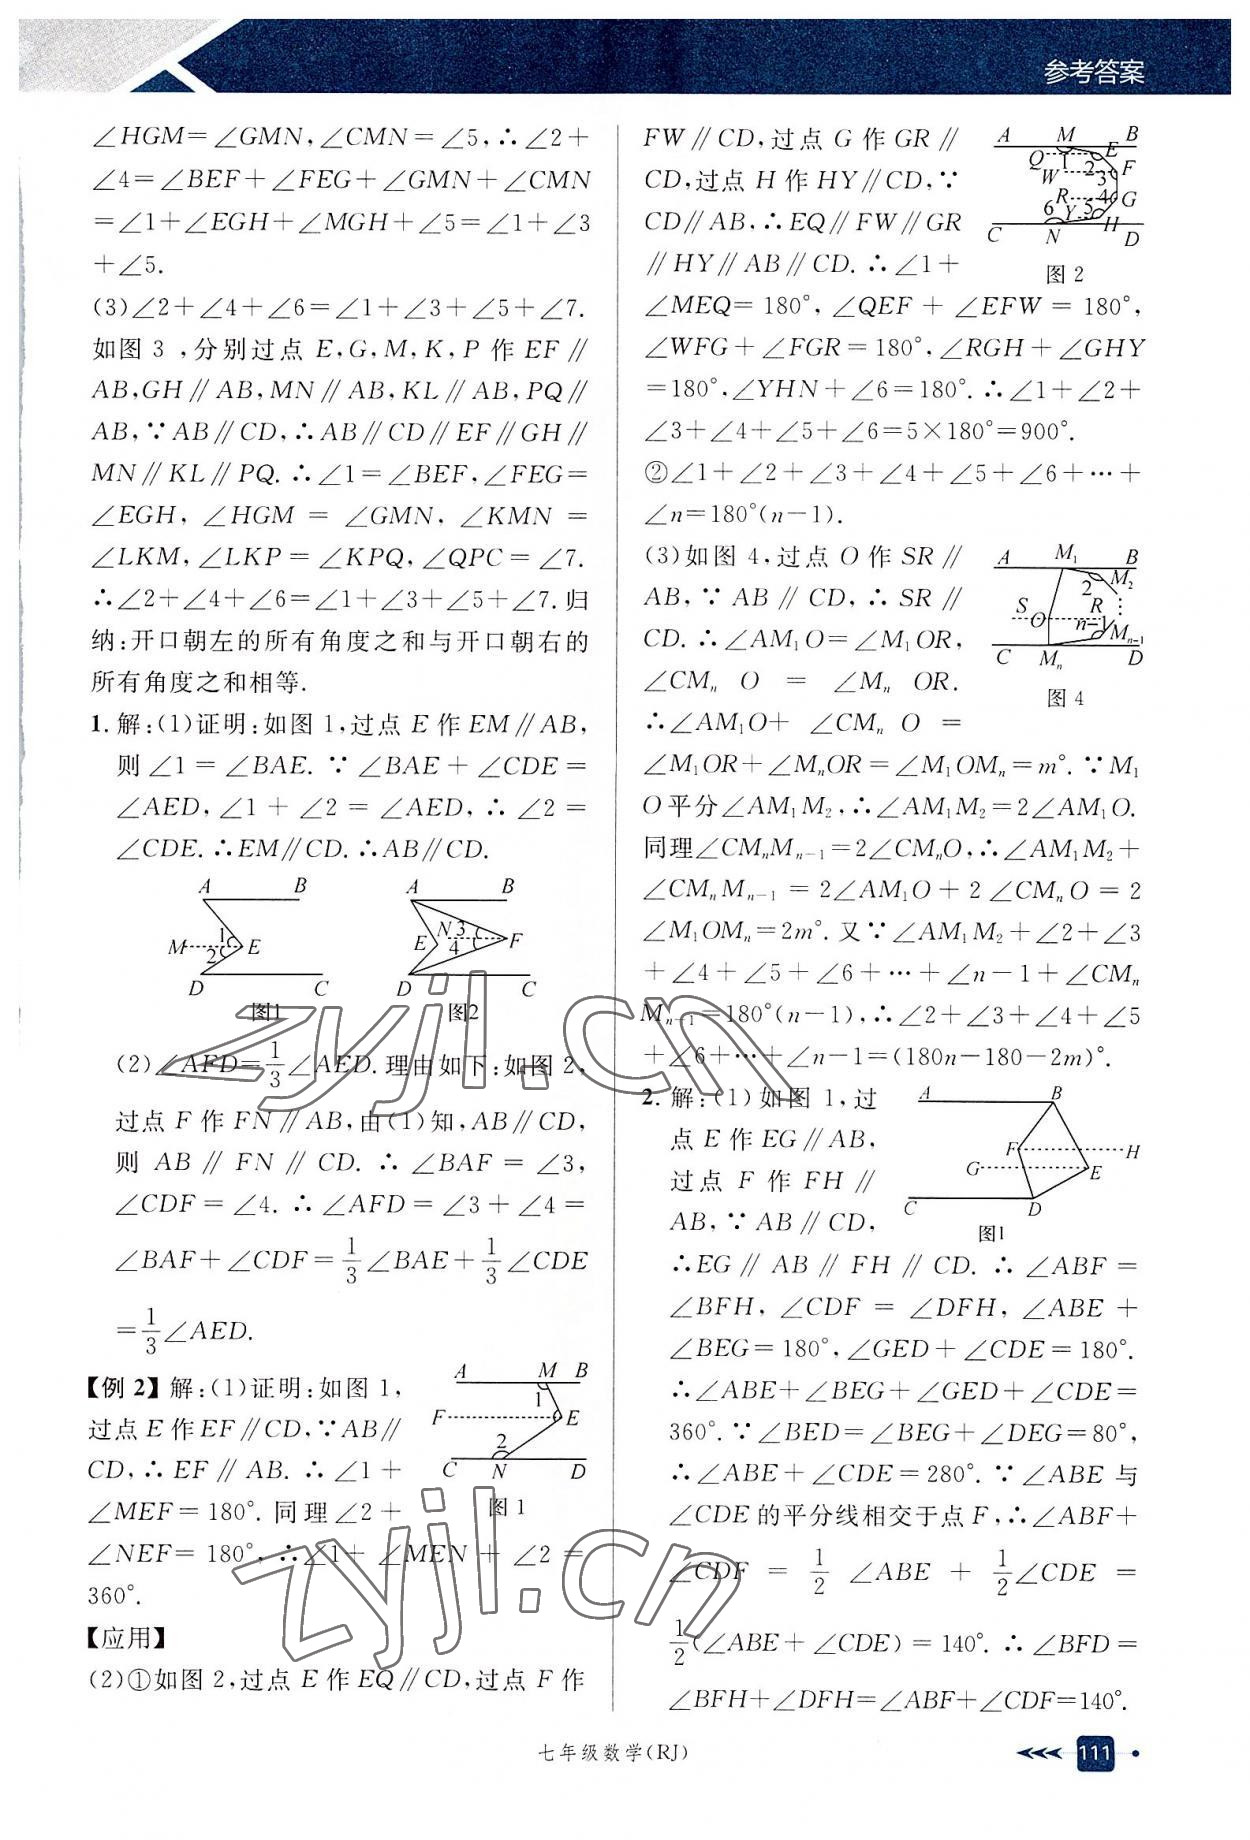 参考答案
∠HGM=∠GMN,∠CMN=∠5,∴∠2+
∠4=∠BEF+∠FEG+∠GMN+∠CMN
=∠1+∠EGH+∠MGH+∠5=∠1+∠3
+∠5.
(3)∠2+∠4+∠6=∠1+∠3+∠5+∠7.
如图3,分别过点E,G,M,K,P作EF∥
AB,GH∥AB,MN∥AB,KL∥AB,PQ∥
AB,∵AB∥CD,∴AB∥CD∥EF∥GH∥
MN∥KL∥PQ.∴∠1=∠BEF,∠FEG=
∠EGH,∠HGM=∠GMN,∠KMN=
∠LKM,∠LKP=∠KPQ,∠QPC=∠7.
∴∠2+∠4+∠6=∠1+∠3+∠5+∠7.归
纳:开口朝左的所有角度之和与开口朝右的
所有角度之和相等.
1.解:(1)证明:如图1,过点E作EM∥AB,
则∠1=∠BAE.∵∠BAE+∠CDE=
∠AED,∠1+∠2=∠AED,∴∠2=
∠CDE.∴EM∥CD.∴AB∥CD.
A B
1
M E
2
D C
图1
A B
N 3
E F
4
D C
图2
(2)∠AFD=1/3∠AED.理由如下:如图2,
过点F作FN∥AB,由(1)知,AB∥CD,
则AB∥FN∥CD.∴∠BAF=∠3,
∠CDF=∠4.∴∠AFD=∠3+∠4=
∠BAF+∠CDF=1/3∠BAE+1/3∠CDE
=1/3∠AED.
【例2】解:(1)证明:如图1,
过点E作EF∥CD,∵AB∥
CD,∴EF∥AB.∴∠1+
∠MEF=180°.同理∠2+
∠NEF=180°,∴∠1+∠MEN+∠2=
360°.
A M B
1
F E
2
C N D
图1
【应用】
(2)①如图2,过点E作EQ∥CD,过点F作
FW∥CD,过点G作GR∥
CD,过点H作HY∥CD,∵
CD∥AB,∴EQ∥FW∥GR
∥HY∥AB∥CD.∴∠1+
∠MEQ=180°,∠QEF+∠EFW=180°,
∠WFG+∠FGR=180°,∠RGH+∠GHY
=180°,∠YHN+∠6=180°.∴∠1+∠2+
∠3+∠4+∠5+∠6=5×180°=900°.
A M B
Q 1 2 E
W 3 F
R 4 G
6 Y 5 H
C N D
图2
②∠1+∠2+∠3+∠4+∠5+∠6+…+
∠n=180°(n-1).
(3)如图4,过点O作SR∥
AB,∵AB∥CD,∴SR∥
CD.∴∠AM₁O=∠M₁OR,
∠CMₙO=∠MₙOR.
∴∠AM₁O+∠CMₙO=
∠M₁OR+∠MₙOR=∠M₁OMₙ=m°.∵M₁
O平分∠AM₁M₂,∴∠AM₁M₂=2∠AM₁O.
同理∠CMₙMₙ₋₁=2∠CMₙO,∴∠AM₁M₂+
∠CMₙMₙ₋₁=2∠AM₁O+2∠CMₙO=2
∠M₁OMₙ=2m°.又∵∠AM₁M₂+∠2+∠3
+∠4+∠5+∠6+…+∠n-1+∠CMₙ
Mₙ₋₁=180°(n-1),∴∠2+∠3+∠4+∠5
+∠6+…+∠n-1=(180n-180-2m)°.
A M₁ B
2 M₂
S O R
n-1 Mₙ₋₁
C Mₙ D
图4
2.解:(1)如图1,过
点E作EG∥AB,
过点F作FH∥
AB,∵AB∥CD,
∴EG∥AB∥FH∥CD.∴∠ABF=
∠BFH,∠CDF=∠DFH,∠ABE+
∠BEG=180°,∠GED+∠CDE=180°.
∴∠ABE+∠BEG+∠GED+∠CDE=
360°.∵∠BED=∠BEG+∠DEG=80°,
∴∠ABE+∠CDE=280°.∵∠ABE与
∠CDE的平分线相交于点F,∴∠ABF+
∠CDF=1/2∠ABE+1/2∠CDE=
1/2(∠ABE+∠CDE)=140°.∴∠BFD=
∠BFH+∠DFH=∠ABF+∠CDF=140°.
A B
F H
G E
C D
图1
zyjl.cn
zyjl.cn
七年级数学(RJ)
111